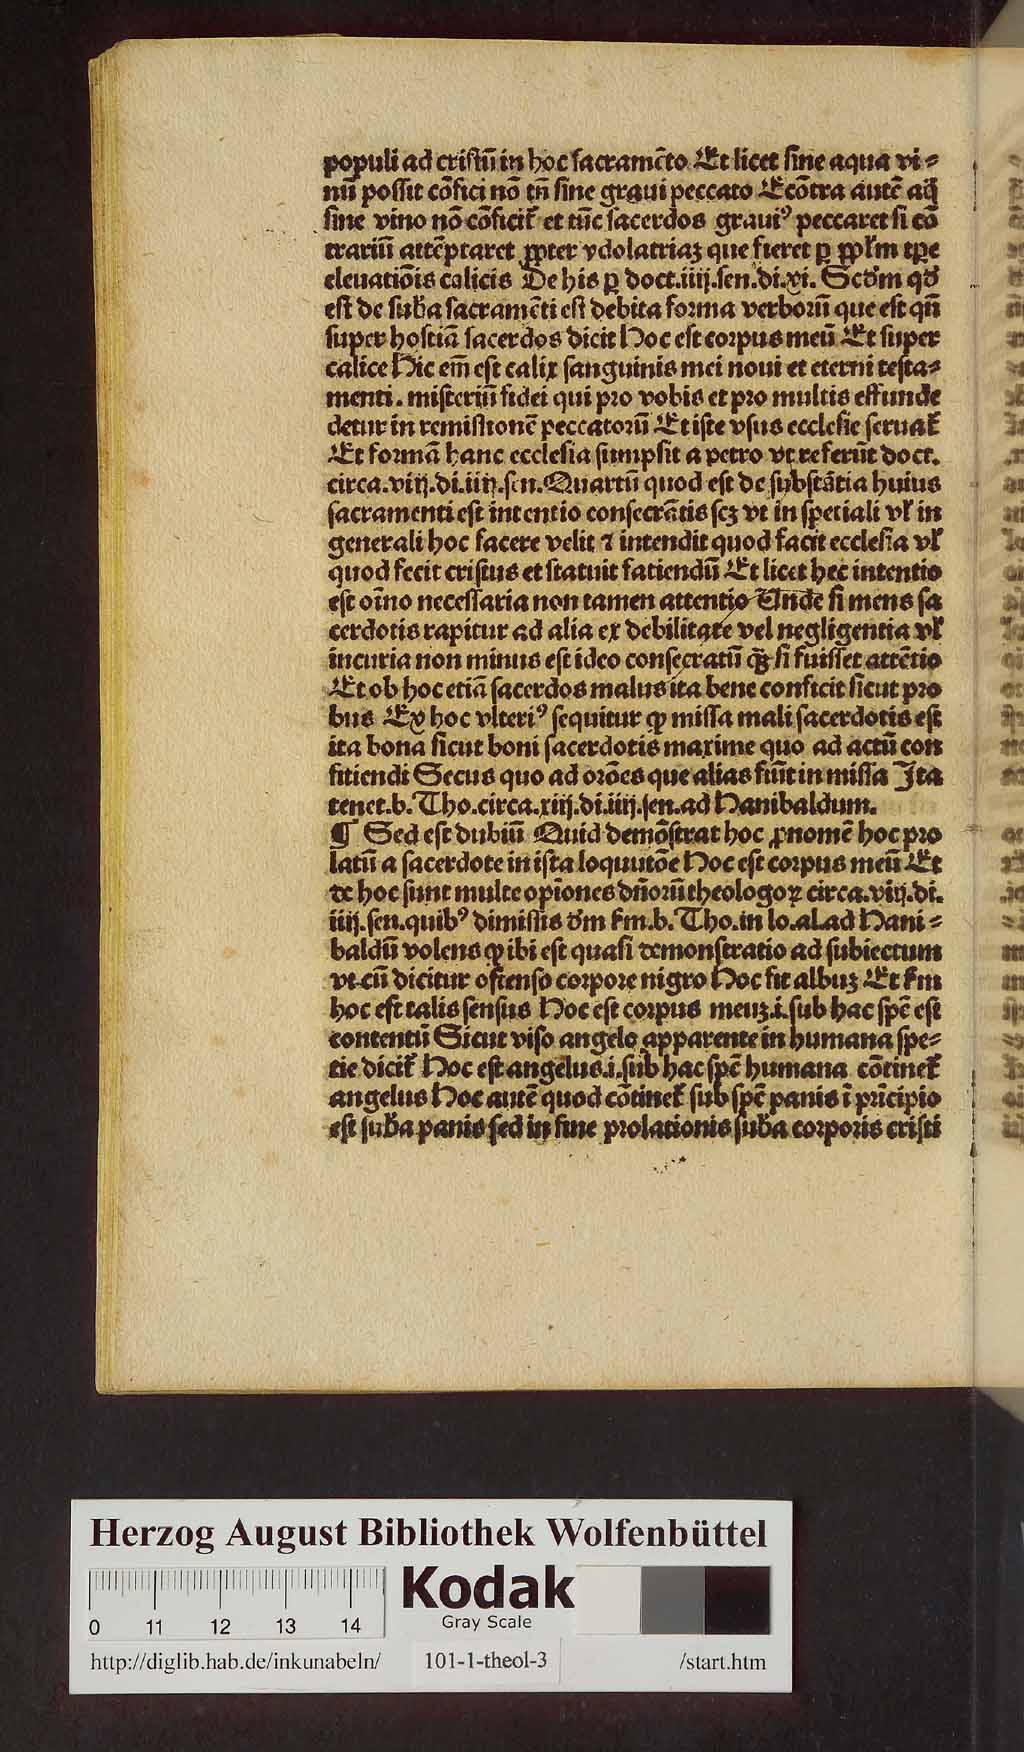 populi ad cristū in hoc sacramēto Et licet sine aqua vi⸗
nū possit cōfici nō tn̄ sine graui peccato Ecōtra autē aq̄
sine vino nō cōficit᷑ et tūc sacerdos grauiꝰ peccaret si cō
trariū attēptaret ꝓpter ydolatriaꝫ que fieret ꝑ ꝓpl'm tꝑe
eleuatiōis calicis De his ꝑ doct.iiij.sen.di.xi. Scd'm qd'
est de sub'a sacramēti est debita forma verborū que est qn̄
super hostiā sacerdos dicit Hoc est corpus meū Et super
calice Hic em̄ est calix sanguinis mei noui et eterni testa⸗
menti. misteriū fidei qui pro vobis et pro multis effunde
detur in remissionē peccatorū Et iste vsus ecclesie seruat᷑
Et formā hanc ecclesia sumpsit a petro vt referūt doct.
circa.viij.di.iiij.sen.Quartū quod est de substātia huius
sacramenti est intentio consecrātis scꝫ vt in speciali vl' in
generali hoc facere velit ⁊ intendit quod facit ecclesia vl'
quod fecit cristus et statuit fatiendū Et licet hec intentio
est oīno necessaria non tamen attentio Unde si mens sa
cerdotis rapitur ad alia ex debilitate vel negligentia vl'
incuria non minus est ideo consecratū qꝫ si fuisset attētio
Et ob hoc etiā sacerdos malus ita bene conficit sicut pro
bus Ex hoc vlteriꝰ sequitur ꝙ missa mali sacerdotis est
ita bona sicut boni sacerdotis maxime quo ad actū con
fitiendi Secus quo ad orōes que alias fiūt in missa Ita
tenet.b.Tho.circa.xiij.di.iiij.sen.ad Hanibaldum.
¶ Sed est dubiū Quid demōstrat hoc ꝓnomē hoc pro
latū a sacerdote in ista loquutōe Hoc est corpus meū Et
de hoc sunt multe opīones dn̄orū theologoꝝ circa.viij.di.
iiij.sen.quibꝰ dimissis d'm s'm.b.Tho.in lo.al.ad Hani⸗
baldū volens ꝙ ibi est quasi demonstratio ad subiectum
vt cū dicitur ostenso corpore nigro Hoc fit albuꝫ Et s'm
hoc est talis sensus Hoc est corpus meuꝫ.i.sub hac spē est
contentū Sicut viso angelo apparente in humana spe⸗
tie dicit᷑ Hoc est angelus.i.sub hac spē humana cōtinet᷑
angelus Hoc autē quod cōtinet᷑ sub spē panis ī prīcipio
est sub'a panis sed in fine prolationis sub'a corporis cristi
Herzog August Bibliothek Wolfenbüttel
Kodak
Gray Scale
0 11 12 13 14
http://diglib.hab.de/inkunabeln/ 101-1-theol-3 /start.htm